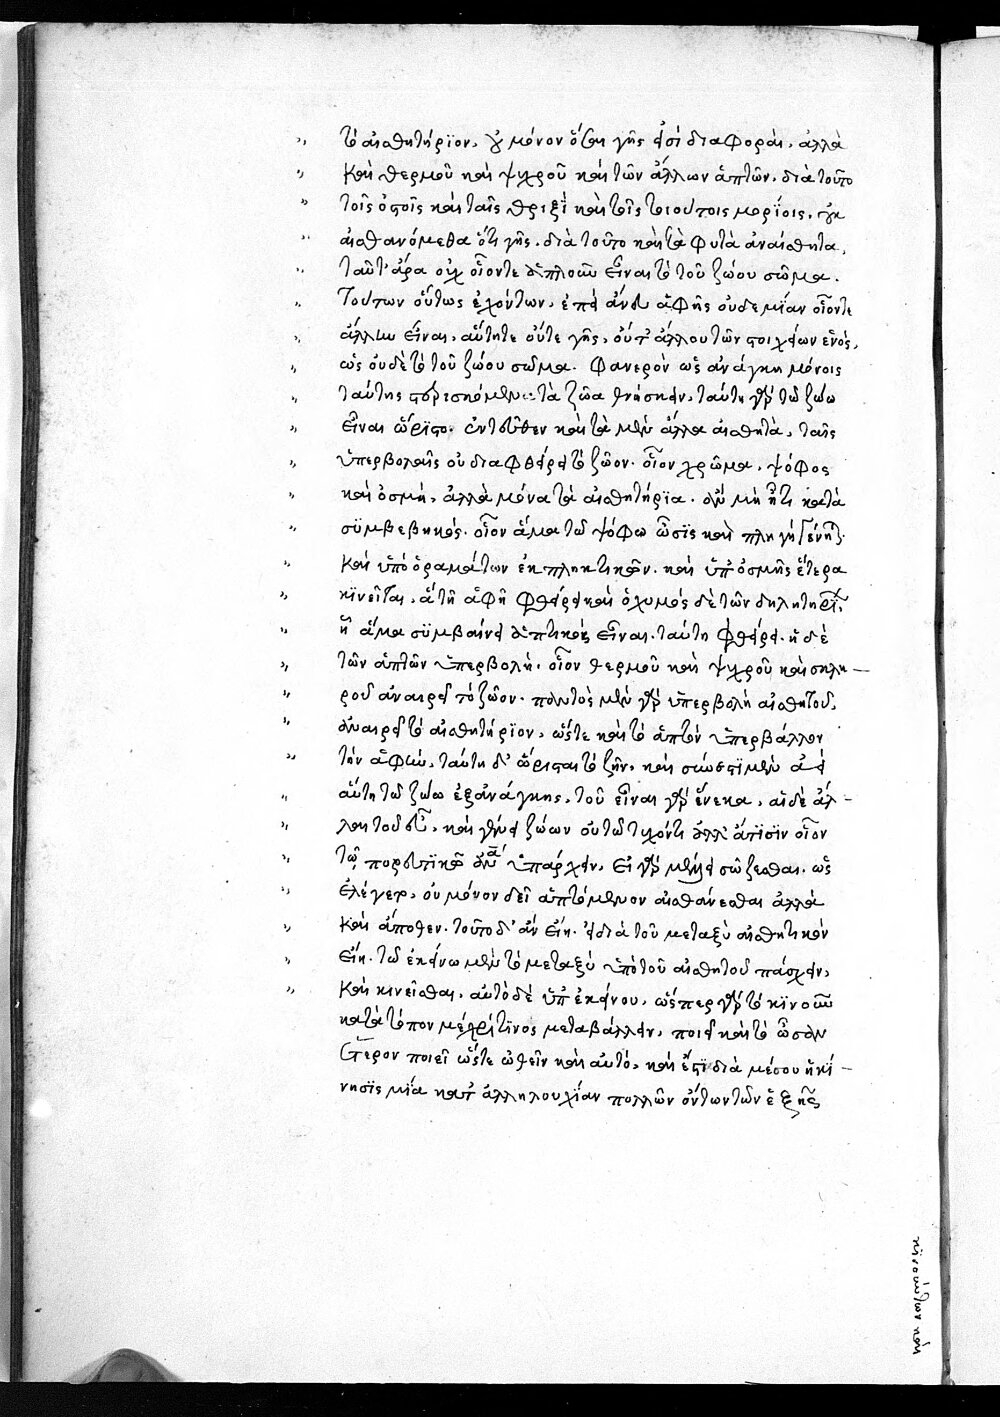 τὸ αἰσθητήριον, οὐ μόνον ὅσαι γῆς εἰσὶ διαφοραὶ, ἀλλὰ
καὶ θερμοῦ καὶ ψυχροῦ καὶ τῶν ἄλλων ἁπτῶν. διὰ τοῦτο
τοῖς ὀστοῖς καὶ ταῖς θριξὶ καὶ τοῖς τοιούτοις μορίοις, οὐκ
αἰσθανόμεθα ὅτι γῆς. διὰ τοῦτο καὶ τὰ φυτὰ ἀναίσθητα,
ταῦτ' ἄρα οὐχ οἷόντε ἁπλοῦν εἶναι τὸ τοῦ ζώου σῶμα.
Τούτων οὕτως ἐχόντων, ἐπεὶ ἄνευ ἁφῆς οὐδεμίαν οἷόντε
ἄλλην εἶναι, αὕτητε οὔτε γῆς, οὔτ' ἄλλου τῶν στοιχείων ἑνός,
ὡς οὐδὲ τὸ τοῦ ζώου σῶμα. Φανερὸν ὡς ἀνάγκη μόνοις
ταύτης στερισκόμενα τὰ ζῶα θνήσκειν, ταύτη γὰρ τῶ ζώω
εἶναι ὥρισται. ἐντεῦθεν καὶ τὰ μὲν ἄλλα αἰσθητὰ, ταῖς
ὑπερβολαῖς οὐ διαφθείρει τὸ ζῶον. οἷον χρῶμα, ψόφος
καὶ ὀσμὴ, ἀλλὰ μόνα τὰ αἰσθητήρια. ἂν μὴ ᾖ τι κατὰ
συμβεβηκός. οἷον ἅμα τῶ ψόφω ὦσις καὶ πληγὴ γένηται.
καὶ ὑπὸ ὁραμάτων ἐκπληκτικῶν. καὶ ὑπ' ὀσμῆς ἕτερα
κινεῖται, ἃ τῆ ἁφῆ φθείρει καὶ ὁ χυμὸς δὲ τῶν δηλητηρίων,
ἧ ἅμα συμβαίνει ἁπτικὸς εἶναι. ταύτη φθείρει. ἡ δὲ
τῶν ἁπτῶν ὑπερβολὴ. οἷον θερμοῦ καὶ ψυχροῦ καὶ σκλη-
ροῦ ἀναιρεῖ τὸ ζῶον. παντὸς μὲν γὰρ ὑπερβολὴ αἰσθητοῦ,
ἀναιρεῖ τὸ αἰσθητήριον, ὥστε καὶ τὸ ἁπτὸν ὑπερβάλλον
τὴν ἁφὴν, ταύτη δ' ὥρισται τὸ ζῆν. καὶ σύνεστι μὲν ἀεὶ
αὕτη τῶ ζώω ἐξανάγκης, τοῦ εἶναι γὰρ ἕνεκα, αἱ δὲ ἄλ-
λαι τοῦ εὖ, καὶ γένει ζώων οὐ τῶ τυχόντι ἀλλ' ἄττισιν οἷον
τῶ πορευτικῶ ἀνάγκη ὑπάρχειν, εἰ γὰρ μέλλει σώζεσθαι, ὡς
ἐλέγετο, οὐ μόνον δεῖ ἁπτόμενον αἰσθάνεσθαι ἀλλὰ
καὶ ἄποθεν. τοῦτο δ' ἂν εἴη. εἰ διὰ τοῦ μεταξὺ αἰσθητικὸν
εἴη. τῶ ἐκείνω μὲν τὸ μεταξὺ ὑπὸ τοῦ αἰσθητοῦ πάσχειν,
καὶ κινεῖσθαι, αὐτὸ δὲ ὑπ' ἐκείνου, ὥσπερ γὰρ τὸ κινοῦν
κατὰ τόπον μέχρί τινος μεταβάλλειν, ποιεῖ καὶ τὸ ὦσαν
ἕτερον ποιεῖ ὥστε ὠθεῖν καὶ αὐτό, καὶ ἔστι διὰ μέσου ἡ κί-
νησις μία κατ' ἀλληλουχίαν πολλῶν ὄντων τῶν ἑξῆς